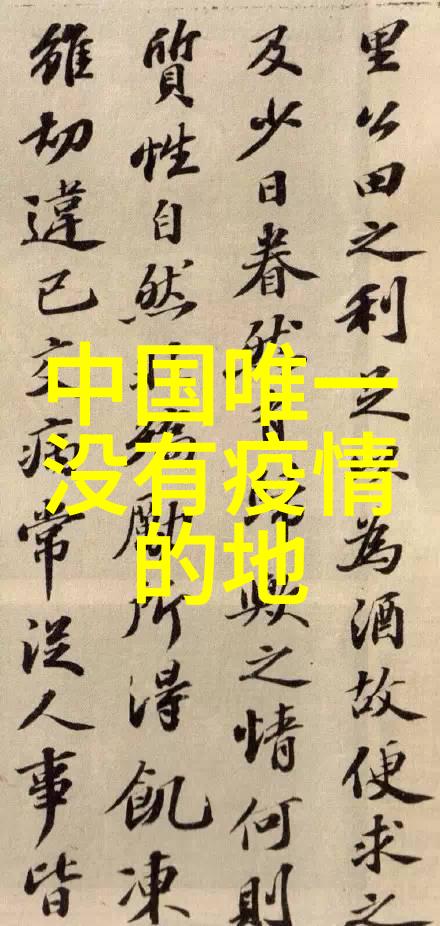 里公田之利足以為酒故便求之
及少日眷然有歸歟之情何則
質性自然非矯勵所得飢凍
雖切違己交病常從人事皆
中国唯一
没有疫情
的地